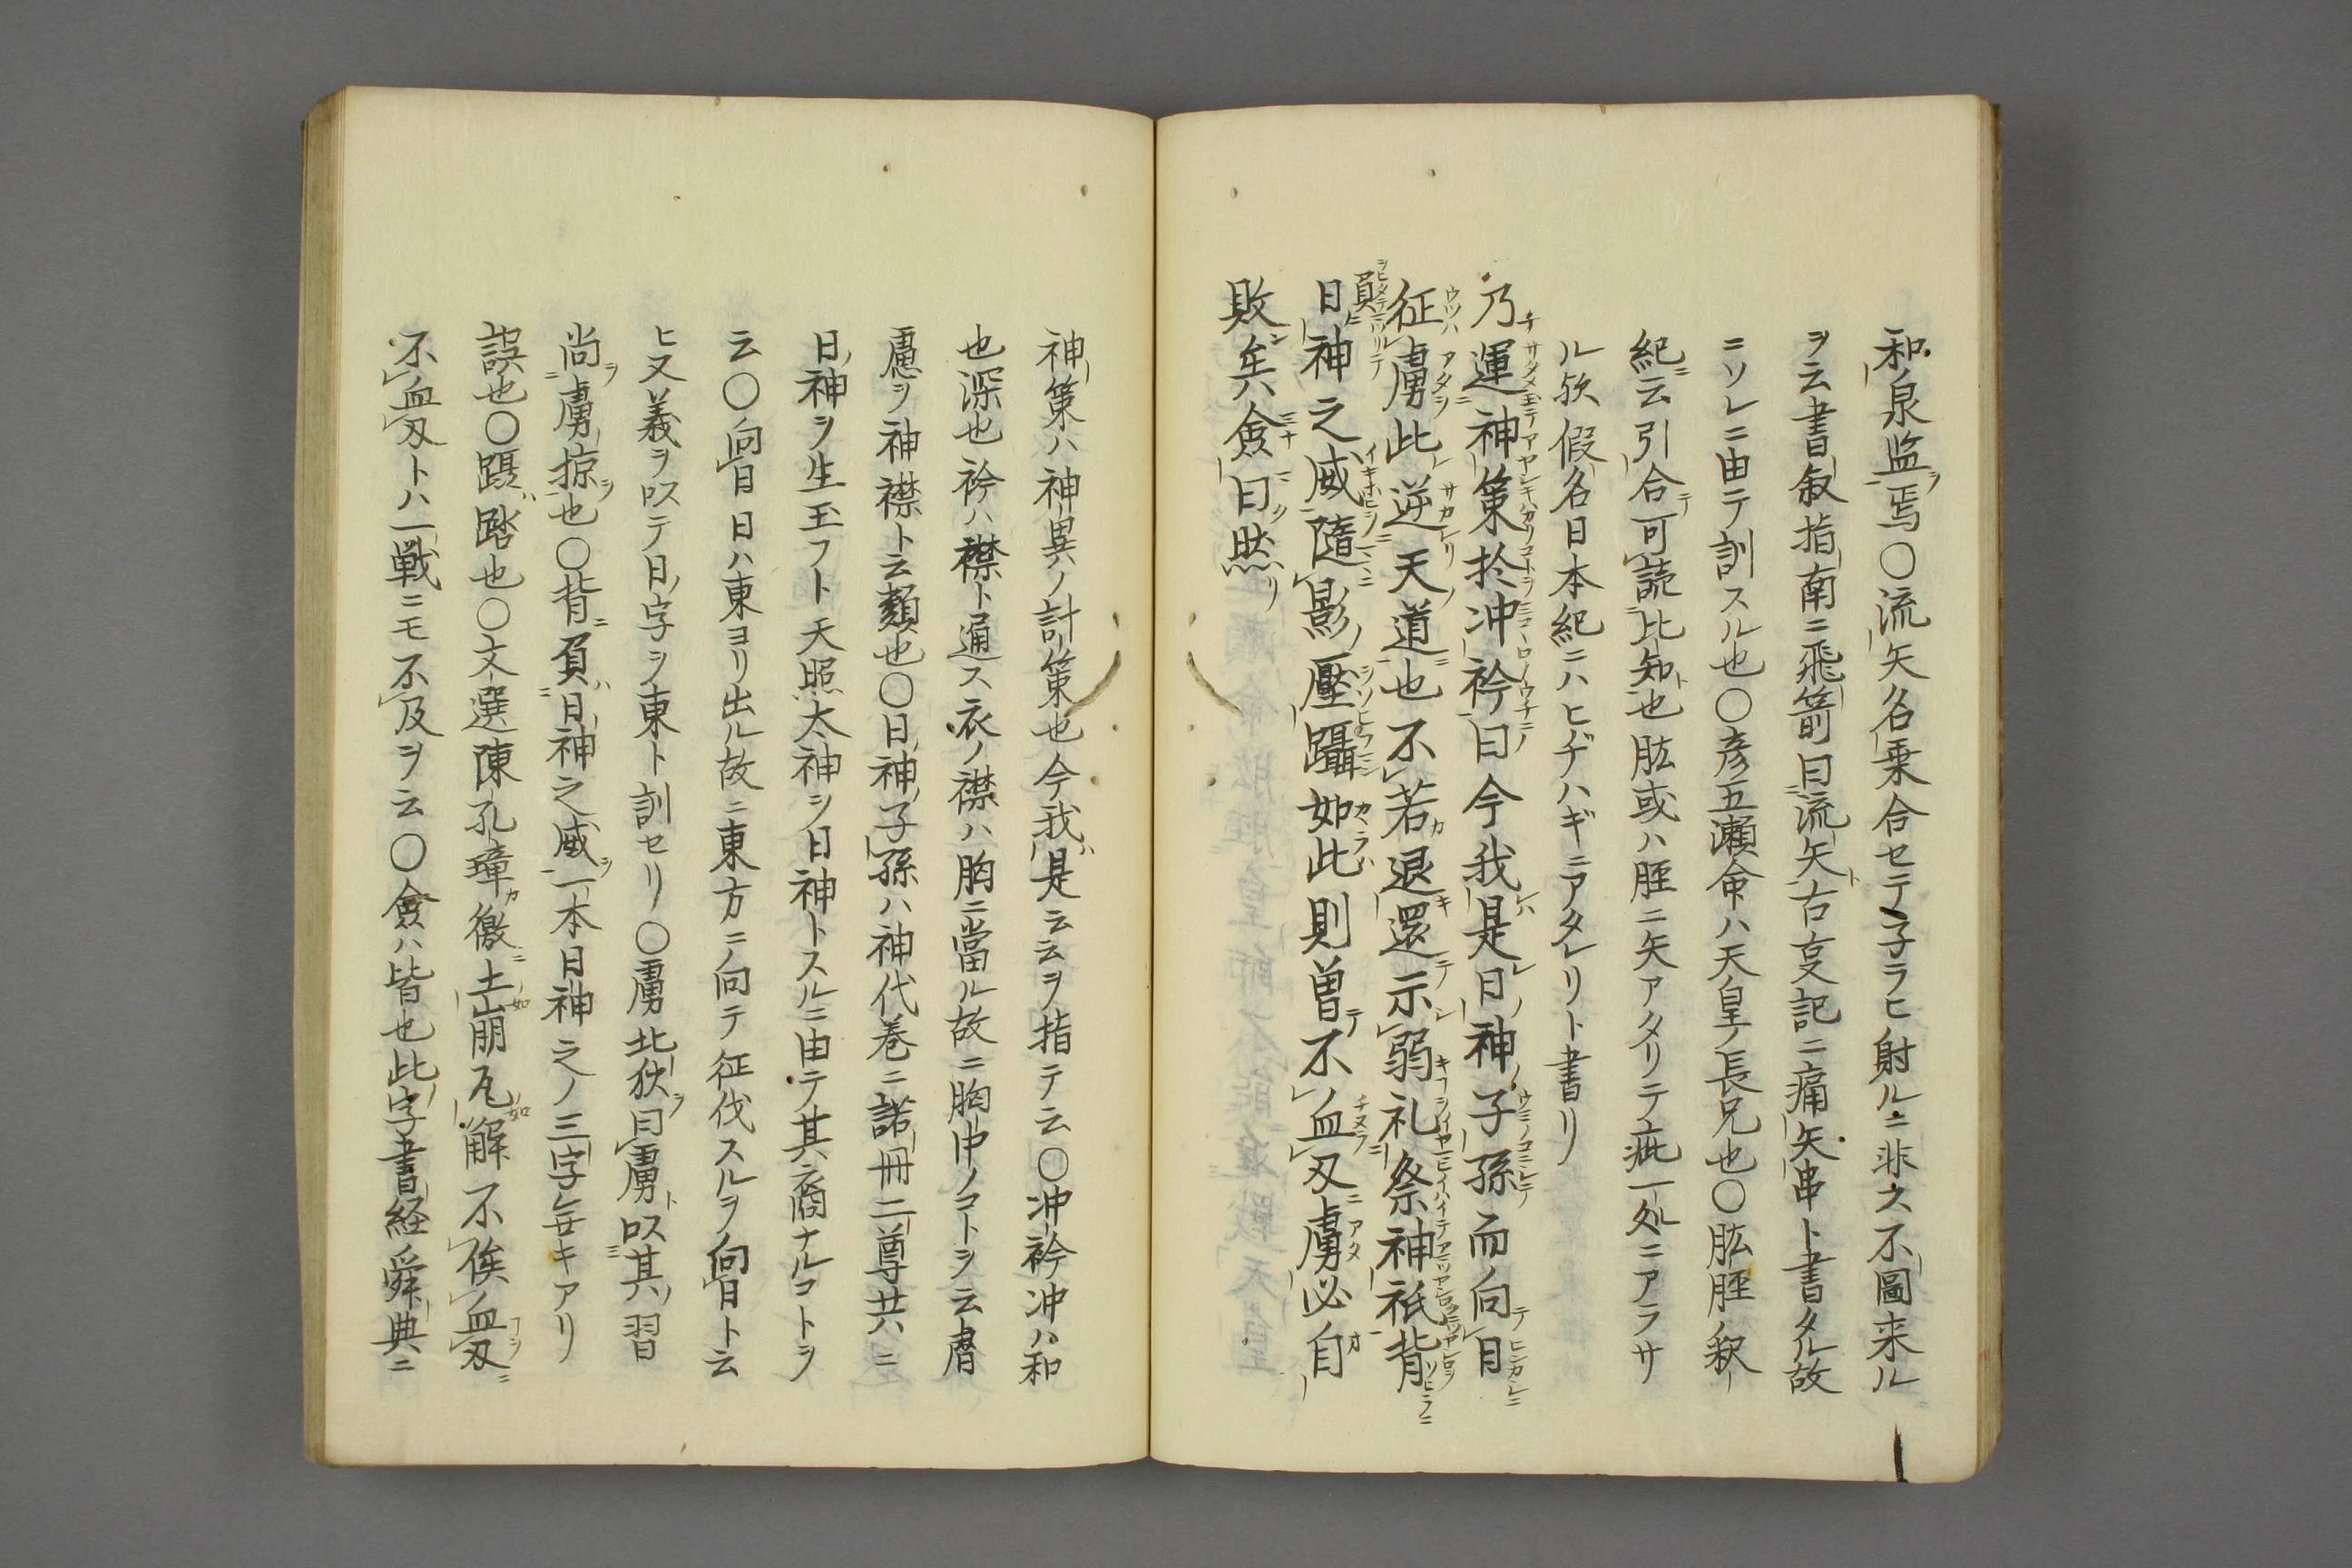 和泉監焉〇流矢名乗合セテ子ラヒ射ルニ非ス不圖来ル
ヲ云書叙指南ニ飛箭曰流矢ト古㕝記ニ痛矢串ト書タル故
ニソレニ由テ訓スル也〇彦五瀬命ハ天皇ノ長兄也〇肱脛釈
紀云引合テ可読比知也肱或ハ脛ニ矢アタリテ疵一処ニアラサ
ル欤假名日本紀ニハヒヂハギニアタレリト書リ
乃運神策於冲衿曰今我是日神子孫而向日
征虜此逆天道也不若退還示弱礼祭神祇背負
日神之威隨影壓躡如此則曽不血刃虜必自
敗矣僉曰然
神策ハ神異ノ計策也今我是云云ヲ指テ云〇冲衿冲ハ和
也深也衿ハ襟ト通ス衣ノ襟ハ胸ニ當ル故ニ胸中ノコトヲ云睿
慮ヲ神襟ト云類也〇日神子孫ハ神代巻ニ諾冊二尊共ニ
日神ヲ生玉フト天照太神ヲ日神トスルニ由テ其裔ナルコトヲ
云〇向日日ハ東ヨリ出ル故ニ東方ニ向テ征伐スルヲ向日ト云
ヒ又義ヲ以テ日字ヲ東ト訓セリ〇虜北狄曰虜ト以其習
尚虜掠也〇背負日神之威一本日神之ノ三字無キアリ
誤也〇躡踏也〇文選陳孔璋檄土崩瓦解不俟血刃
不血刃トハ一戦ニモ不及ヲ云〇僉ハ皆也此字書経舜典ニ